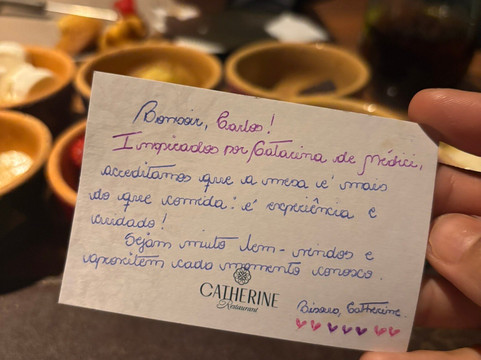 Bonsoir, Carlos!
Inspirados por Catarina de Médici,
acreditamos que a mesa é mais
do que comida: é experiência e
cuidado!
Sejam muito bem-vindos e
aproveitem cada momento conosco.
CATHERINE
Restaurant
Bisous, Catherine.